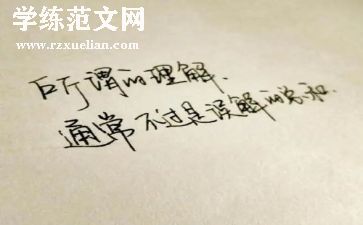 学练范文网
www.rzxuelian.com
所谓的理解、
通常不过是误解的总和.